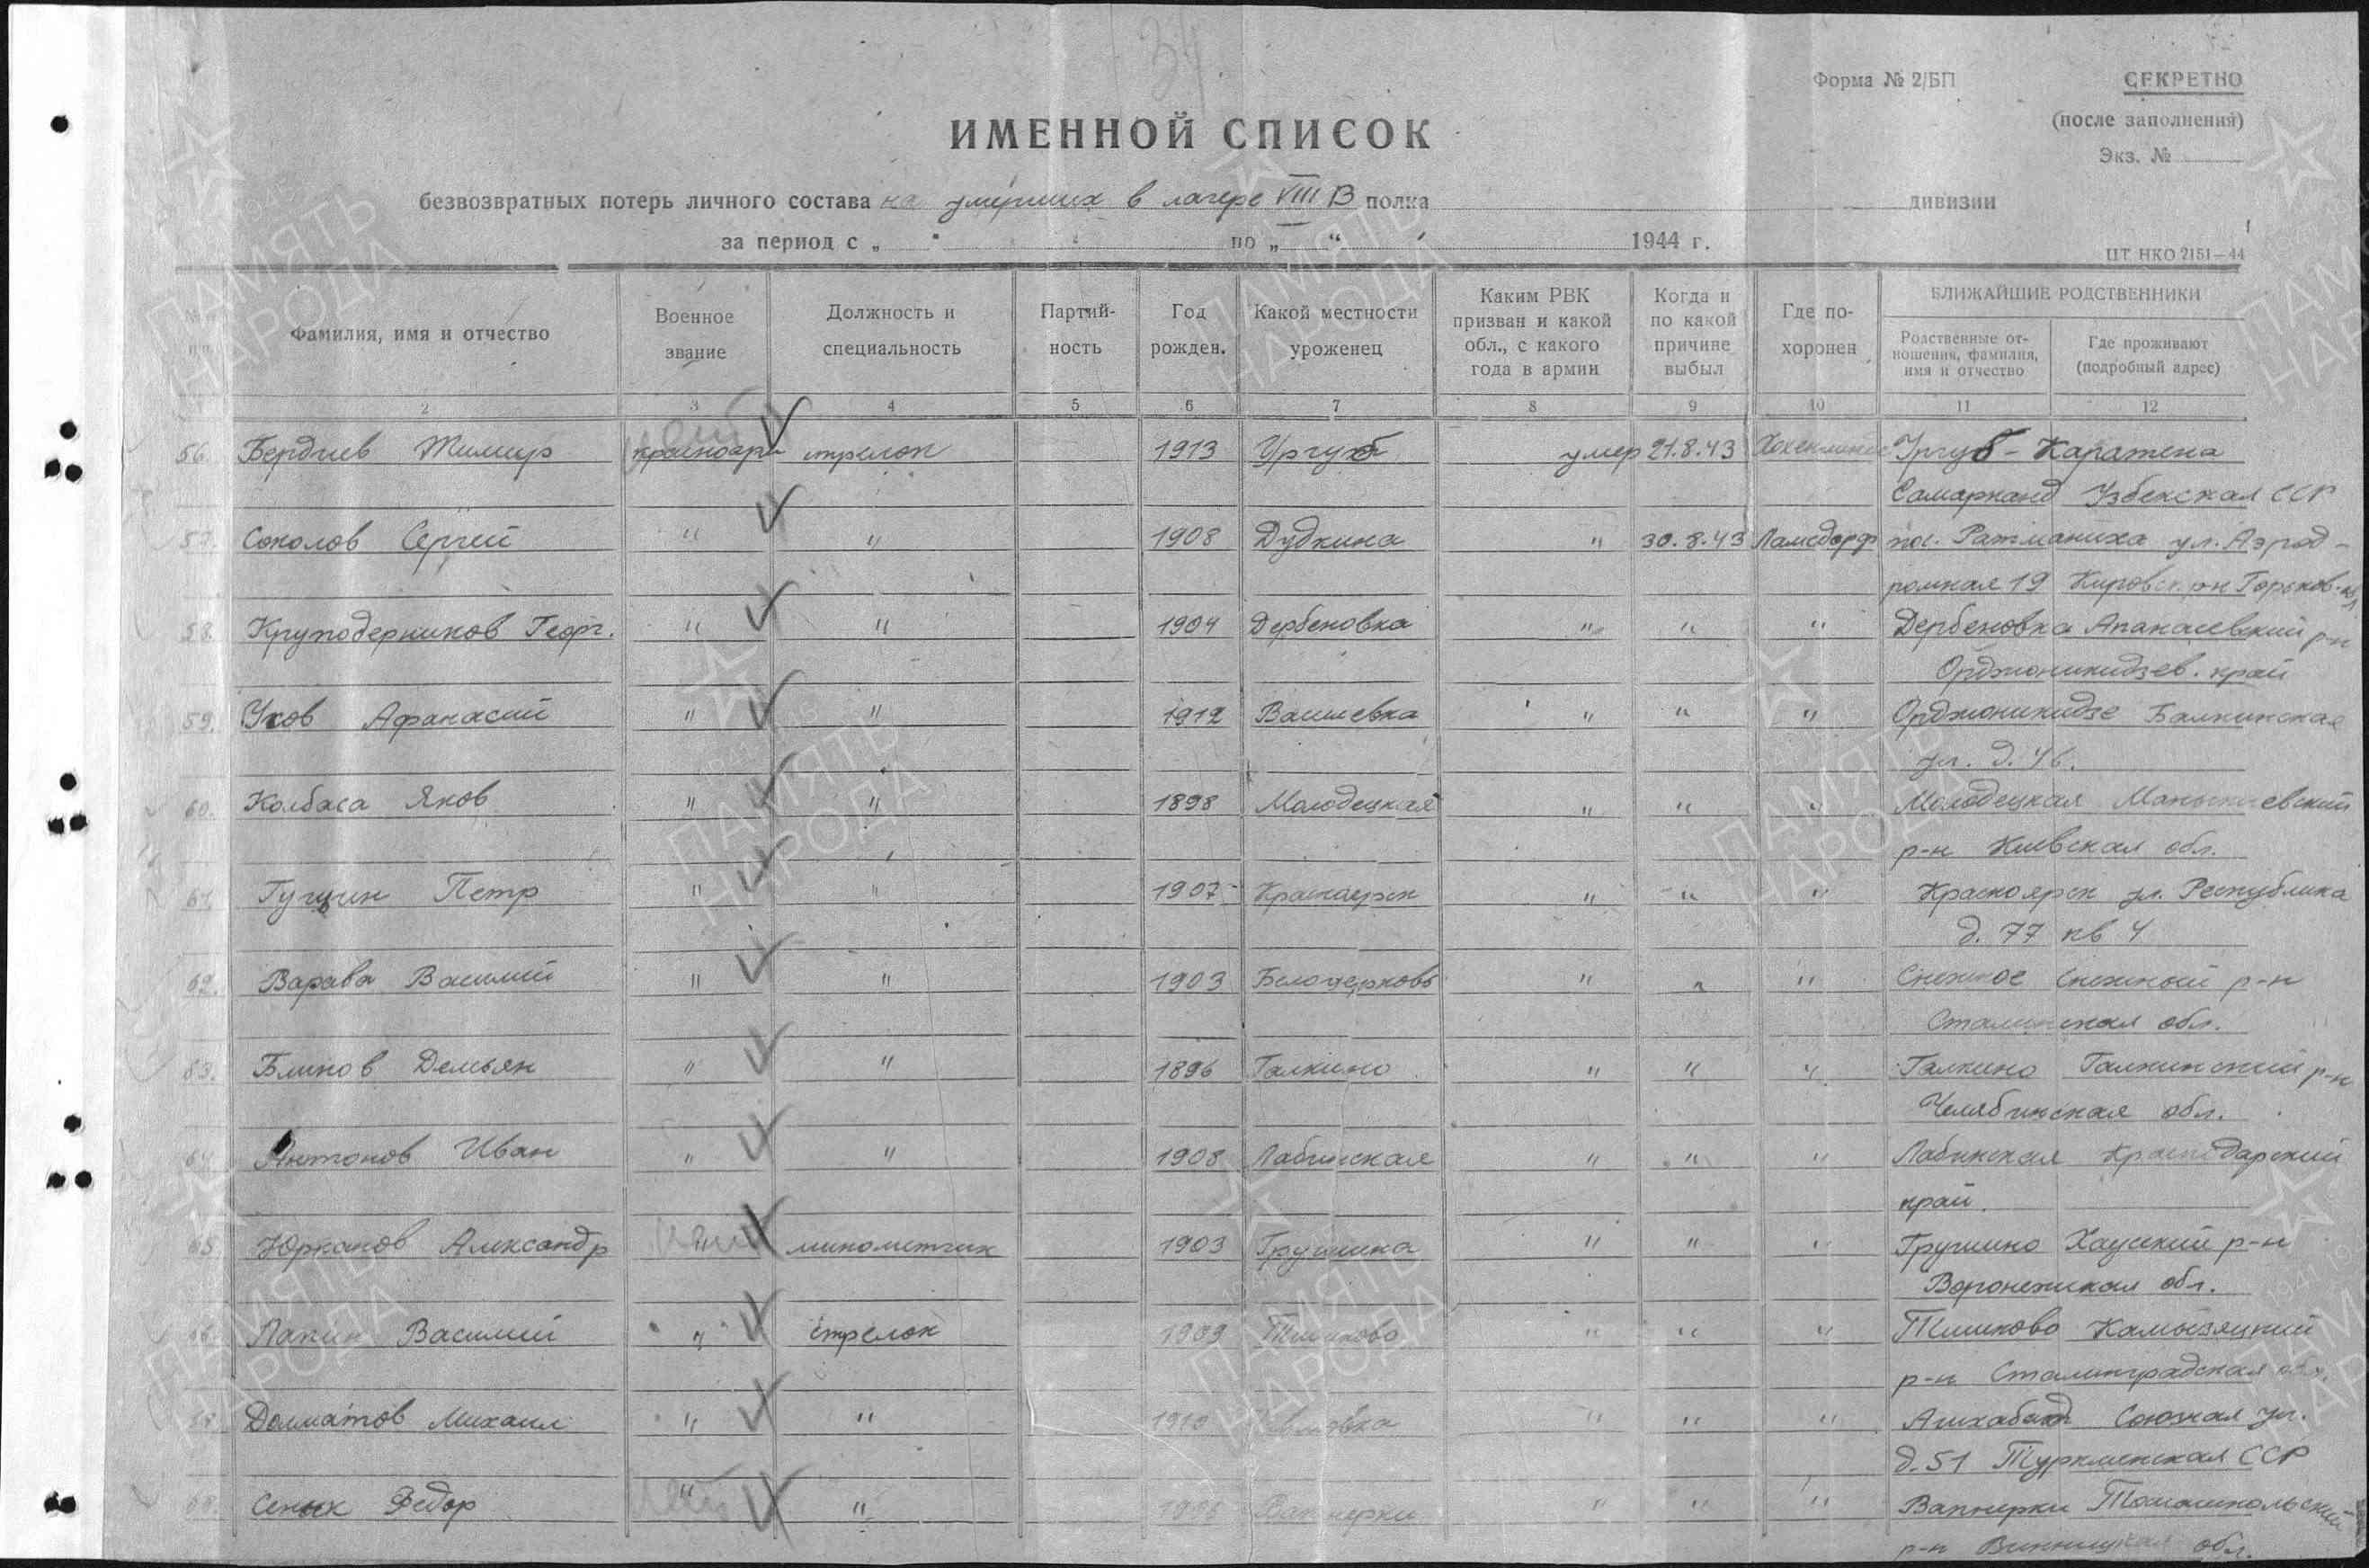 34
Форма № 2/БП
СЕКРЕТНО
(после заполнения)
Экз. №
ИМЕННОЙ СПИСОК
безвозвратных потерь личного состава на умерших в лагере VIII B полка дивизии
за период с „ “ по „ “ 1944 г.
ЦТ НКО 2151—44
Фамилия, имя и отчество
Военное звание
Должность и специальность
Партий-ность
Год рожден.
Какой местности уроженец
Каким РВК призван и какой обл., с какого года в армии
Когда и по какой причине выбыл
Где по-хоронен
БЛИЖАЙШИЕ РОДСТВЕННИКИ
Родственные от-ношения, фамилия, имя и отчество
Где проживают (подробный адрес)
2 3 4 5 6 7 8 9 10 11 12
56. Бердиев Тимир красноарм стрелок 1913 Ургуб умер 21.8.43 Ургуб - Каратена
Самарканд Узбекская ССР
57. Соколов Сергей " " 1908 Дудкина " 30.8.43 Ламсдорф пос. Ратманиха ул. Аэрод-
ромная 19 Кировск. р-н Горьков.
58. Круподерников Георг. " " 1904 Дербеновка " " " Дербеновка Апанасевский р-н
Орджоникидзев. край
59. Ухов Афанасий " " 1912 Васильевка " " " Орджоникидзе Балкинская
ул. д. 46.
60. Колбаса Яков " " 1898 Молодецкая " " " Молодецкая
р-н Киевская обл.
61. Гущин Петр " " 1907 Красноярск " " " Красноярск ул. Республика
д. 77 кв 4
62. Варава Василий " " 1903 Белоцерковь " " " Снежное Снежный р-н
Сталинская обл.
63. Блинов Демьян " " 1896 Галкино " " " Галкино Галкинский р-н
Челябинская обл.
64. Антонов Иван " " 1908 Лабинская " " " Лабинская Краснодарский
край.
65. Юрканов Александр " минометчик 1903 Грушина " " " Грушино р-н
Воронежская обл.
66. Лапин Василий " стрелок 1909 Тишково " " " Тишково Камызяцкий
р-н Сталинградская обл.
67. Долматов Михаил " " 1910 " " " Ашхабад Союзная ул.
д. 51 Туркменская ССР
68. Сенык Федор " " Вапнерки " " " Вапнерки Томашпольский
р-н Винницкая обл.
ПАМЯТЬ НАРОДА